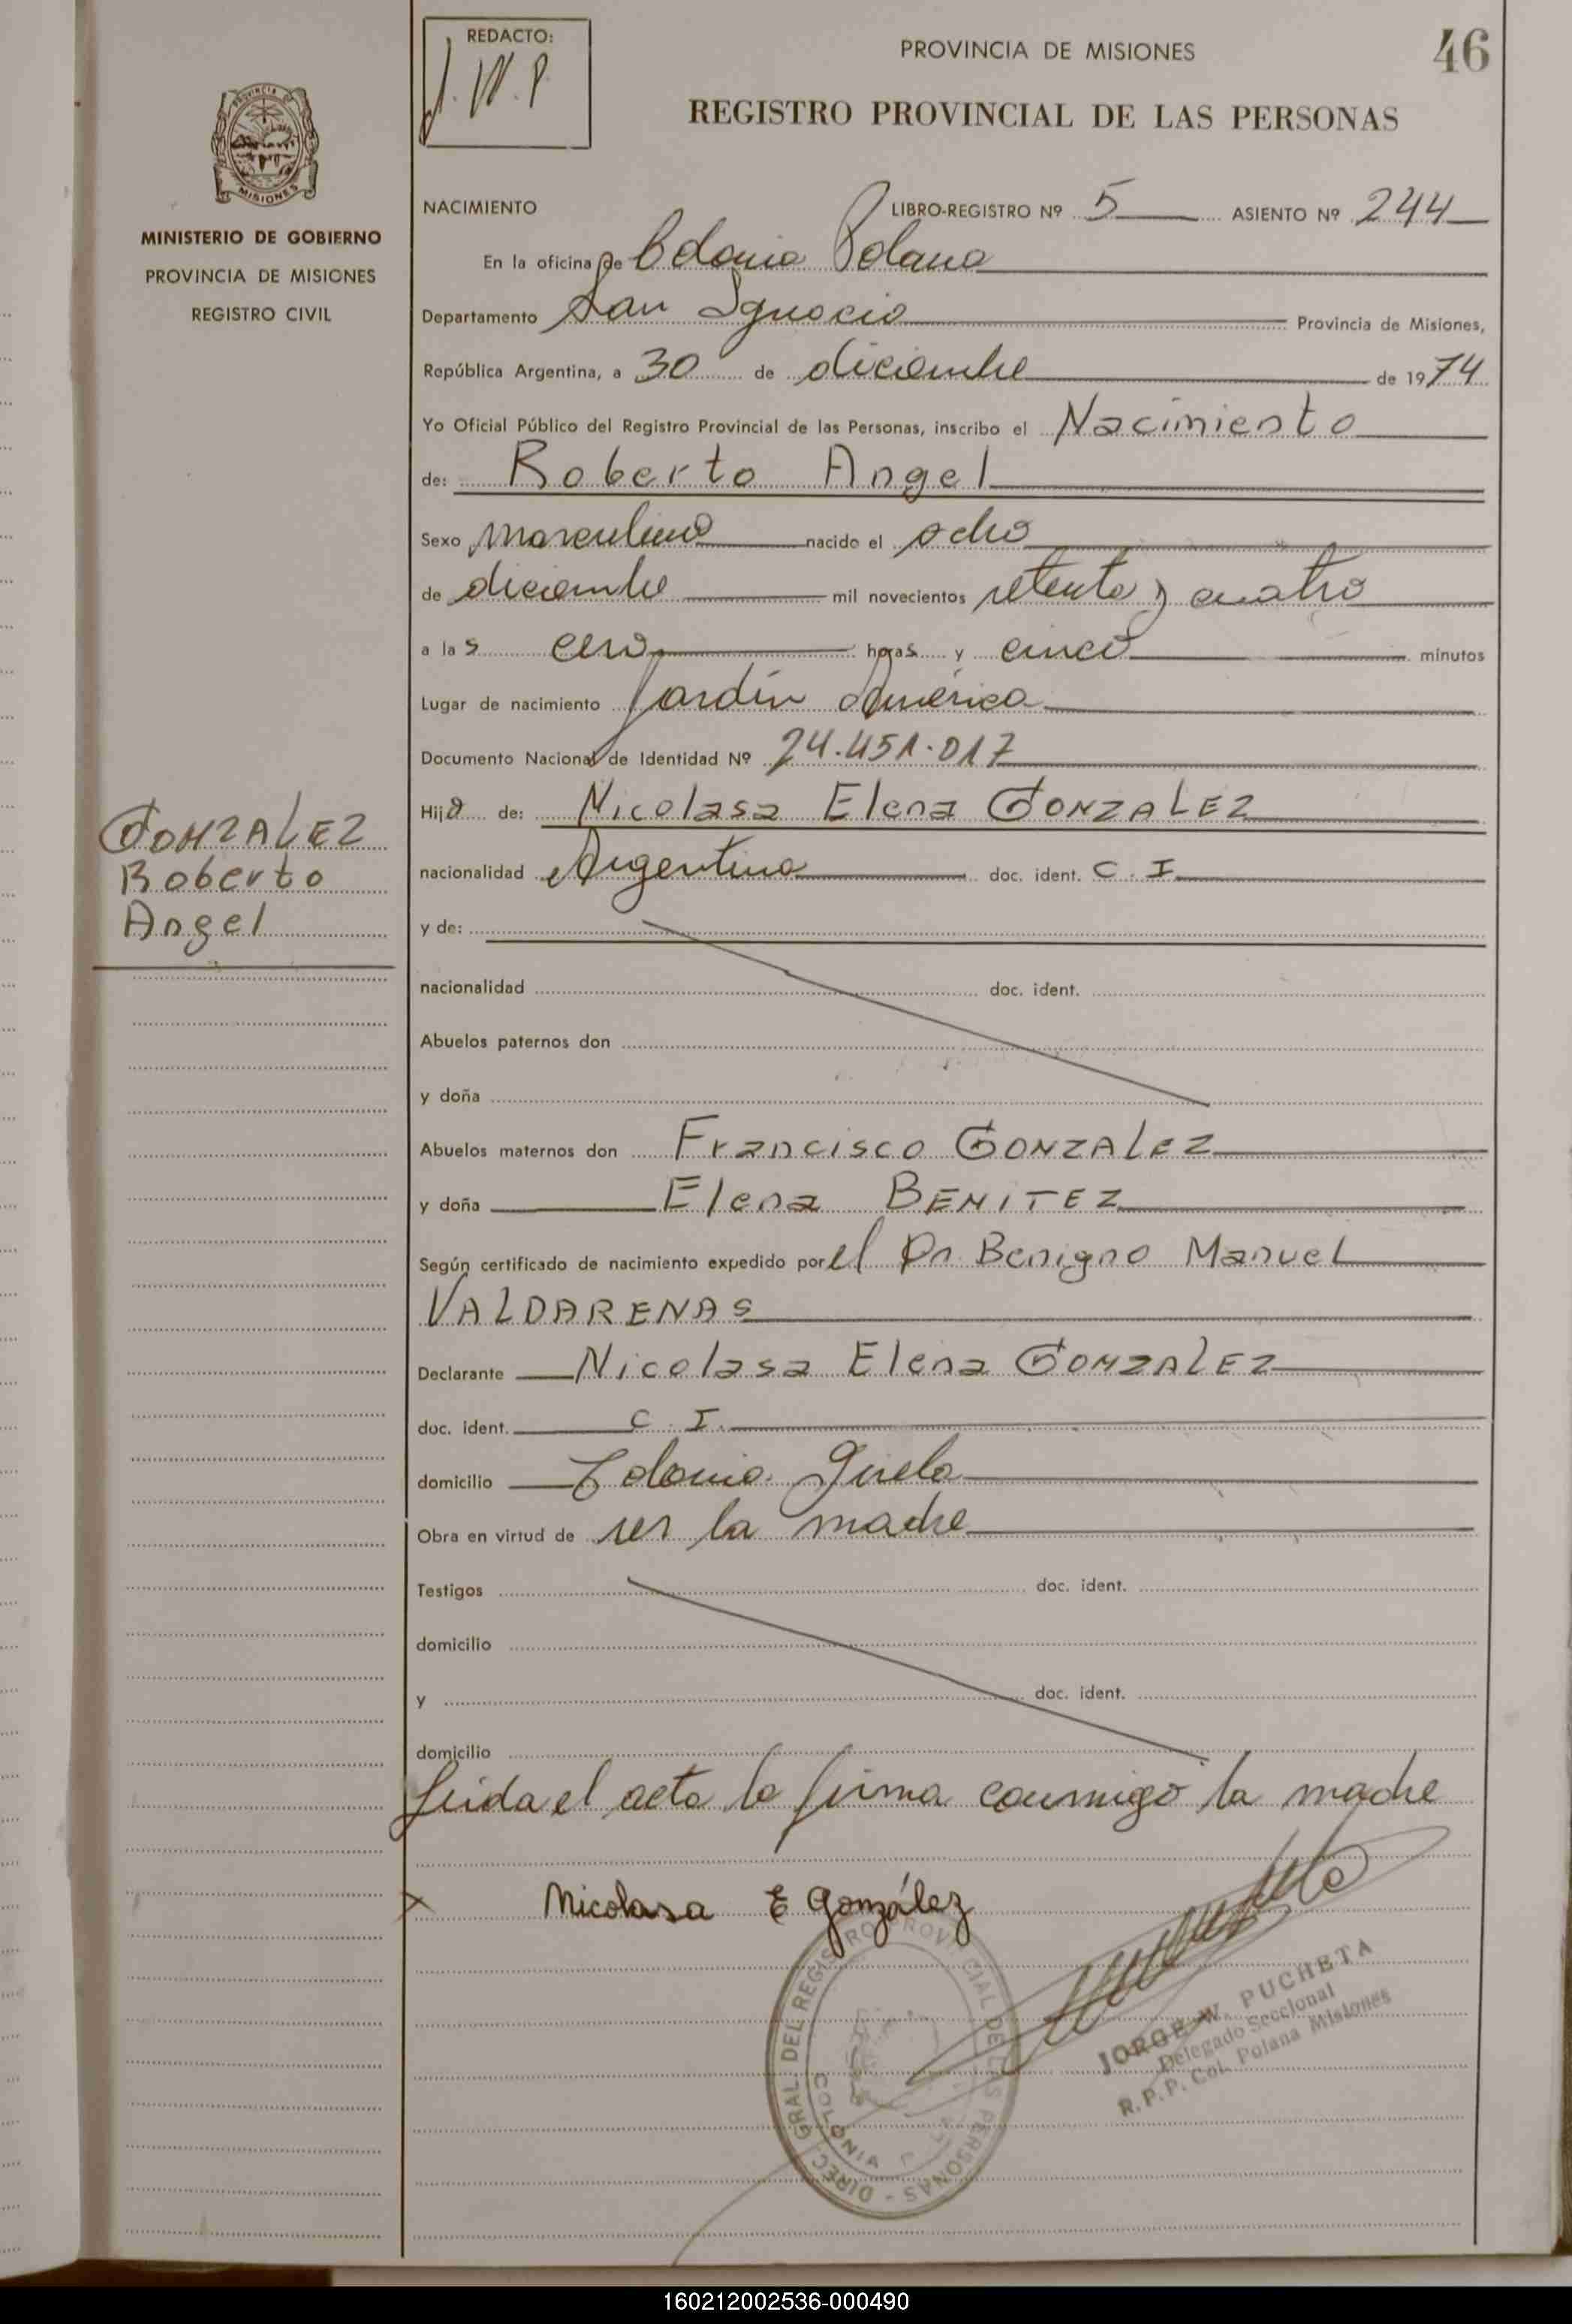 REDACTO:
J. W. P.
PROVINCIA DE MISIONES
46
REGISTRO PROVINCIAL DE LAS PERSONAS
PROVINCIA DE
MISIONES
MINISTERIO DE GOBIERNO
PROVINCIA DE MISIONES
REGISTRO CIVIL
NACIMIENTO LIBRO-REGISTRO Nº 5 ASIENTO Nº 244
En la oficina de Colonia Polana
Departamento San Ignacio Provincia de Misiones,
República Argentina, a 30 de diciembre de 1974
Yo Oficial Público del Registro Provincial de las Personas, inscribo el Nacimiento
de: Roberto Angel
Sexo masculino nacido el ocho
de diciembre mil novecientos setenta y cuatro
a las cero horas y cinco minutos
Lugar de nacimiento Jardín América
Documento Nacional de Identidad Nº 24.451.017
Hijo de: Nicolasa Elena GONZALEZ
GONZALEZ
Roberto
Angel
nacionalidad Argentina doc. ident. C. I.
y de:
nacionalidad doc. ident.
Abuelos paternos don
y doña
Abuelos maternos don Francisco GONZALEZ
y doña Elena BENITEZ
Según certificado de nacimiento expedido por el Dr. Benigno Manuel
VALDARENAS
Declarante Nicolasa Elena GONZALEZ
doc. ident. C. I.
domicilio Colonia Gisela
Obra en virtud de ser la madre
Testigos doc. ident.
domicilio
y doc. ident.
domicilio
Leida el acta la firma conmigo la madre
Nicolasa E González
DIREC. GRAL. DEL REGISTRO PROVINCIAL DE LAS PERSONAS -
COLONIA
JORGE W. PUCHETA
Delegado Seccional
R.P.P. Col. Polana Misiones
160212002536-000490